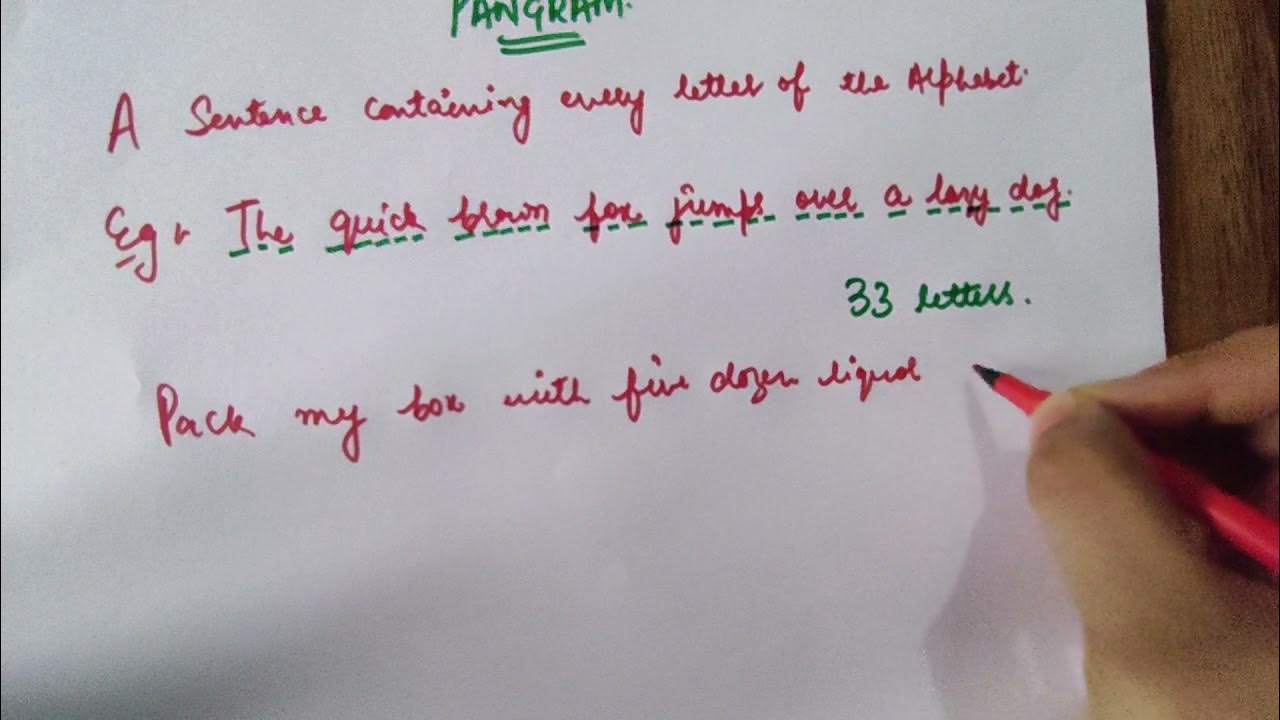 PANGRAM.
A Sentence containing every letter of the Alphabet.
Eg: The quick brown fox jumps over a lazy dog.
33 letters.
Pack my box with five dozen liquor